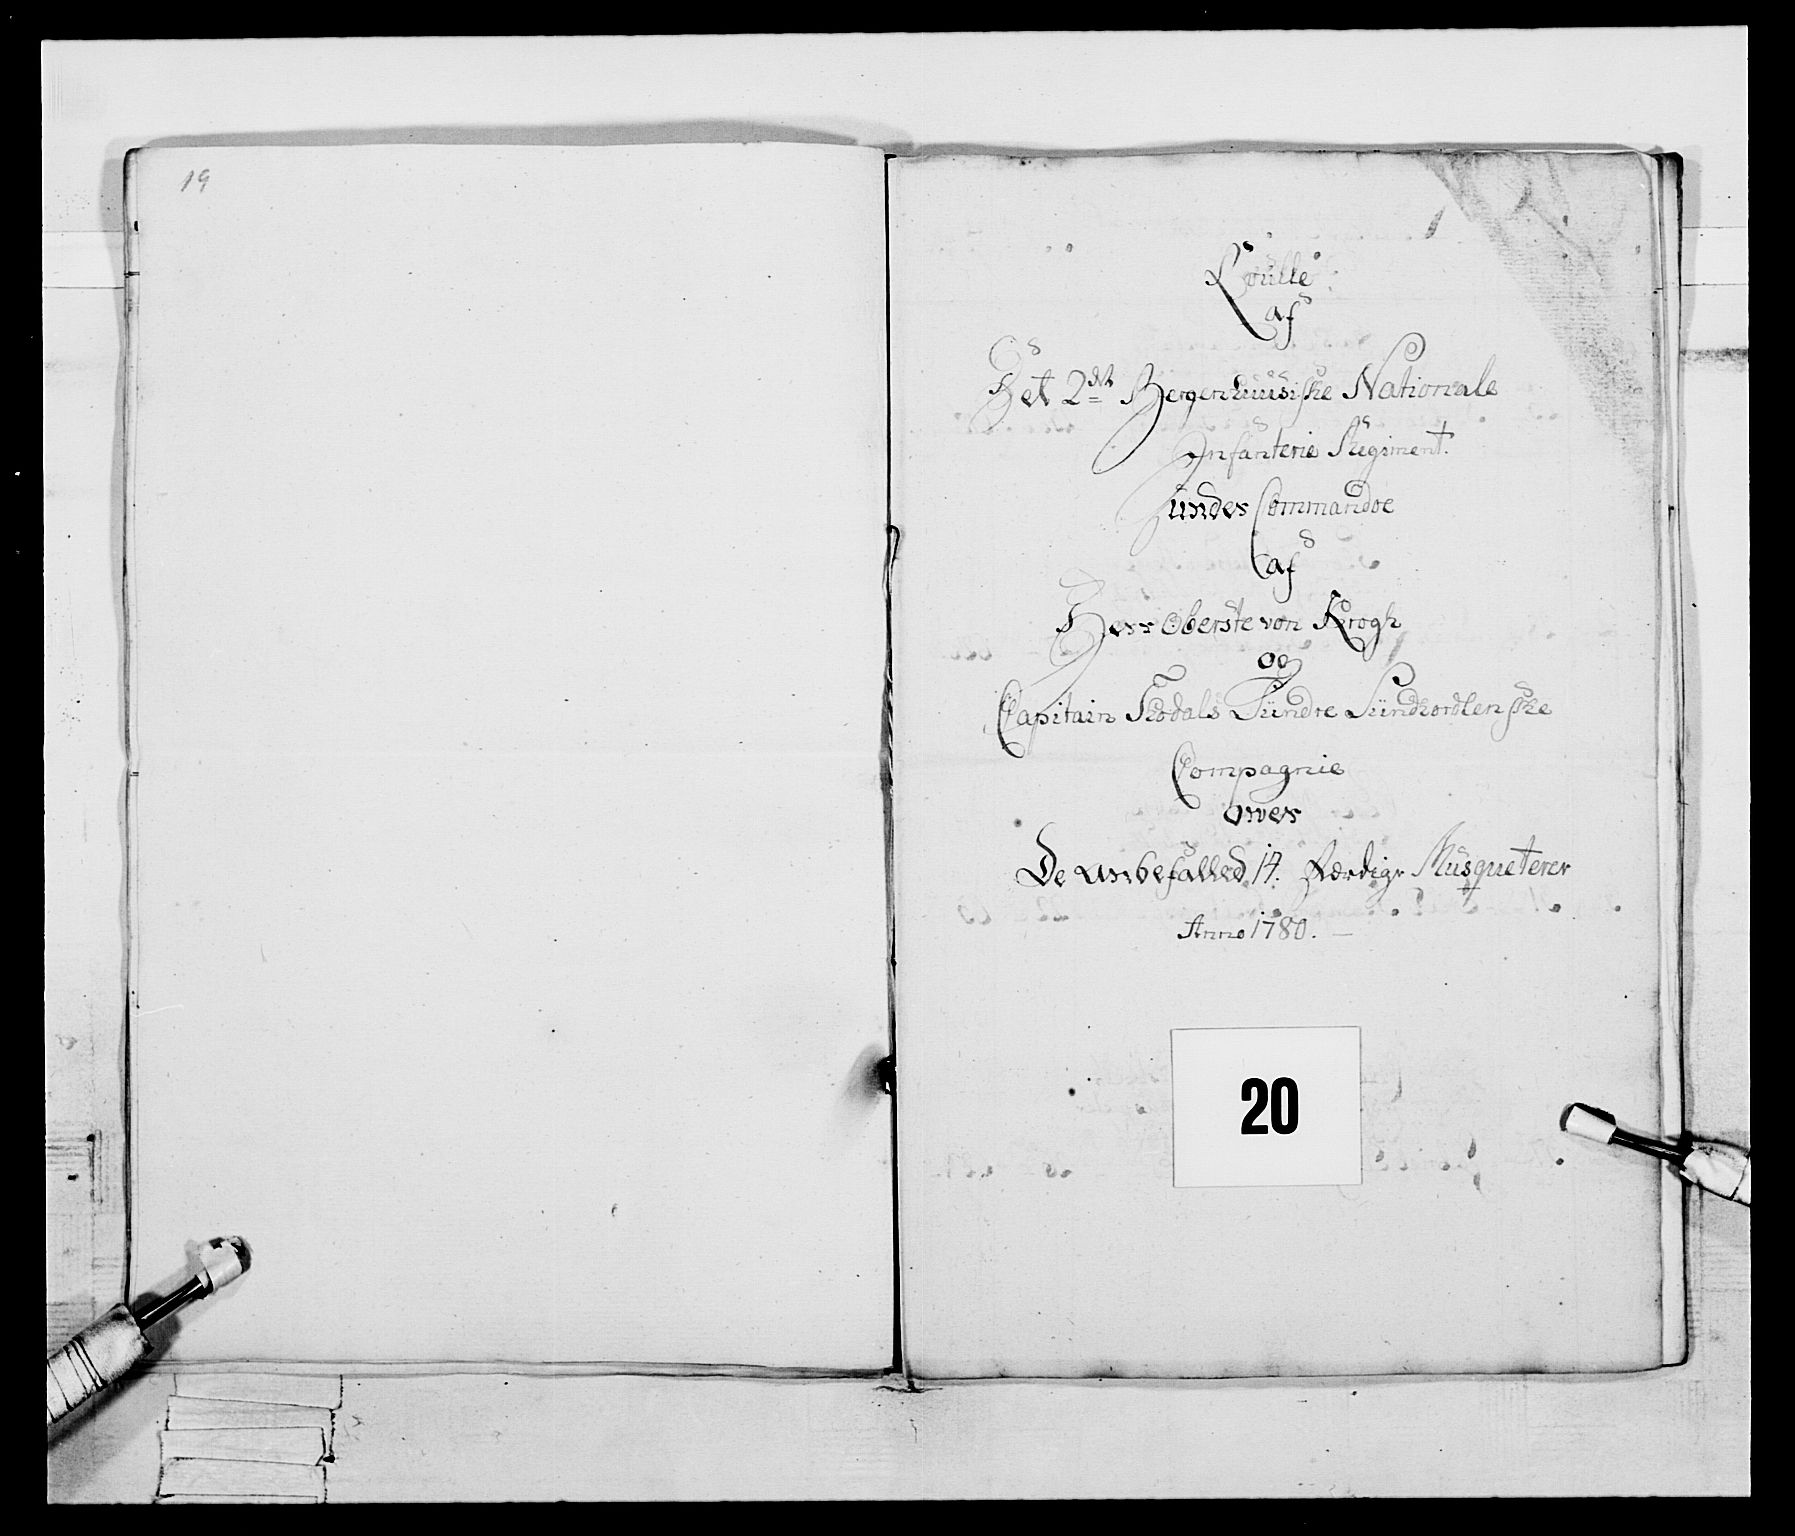 19
Roulle
af
Det 2det Bergenhuusiske Nationale
Infanterie Regiment.
under Commandoe
af
Herr Oberste von Krogh
og
Capitain Skodals Sündre Sündhordlenske
Compagnie
over
De anbefalled 14. færdige Musqueterer
Anno 1780.
20